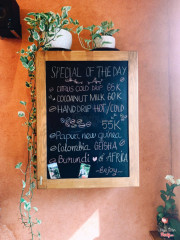 SPECIAL OF THE DAY
CITRUS COLD DRIP 65K
COCOANUT MILK 60K
HAND DRIP HOT/COLD
55K
Papua new guinea
Colombia GEISHA
Burundi OF AFRICA
Enjoy